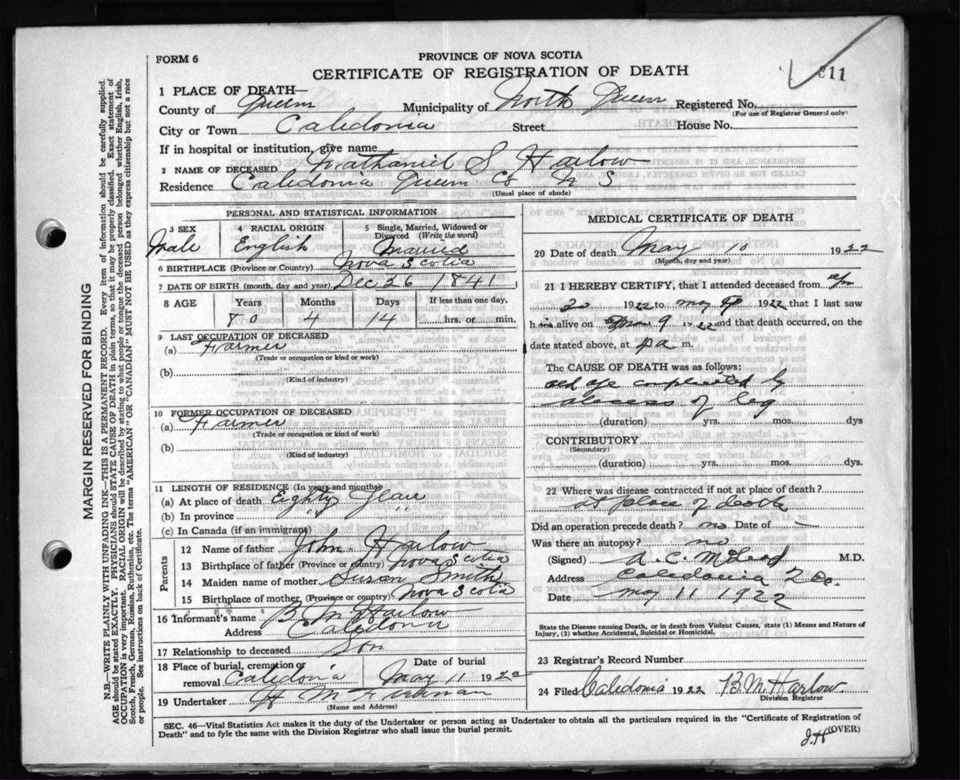 FORM 6
PROVINCE OF NOVA SCOTIA
CERTIFICATE OF REGISTRATION OF DEATH
11
1 PLACE OF DEATH—
County of Queens Municipality of North Queen Registered No.
(For use of Registrar General only)
City or Town Caledonia Street House No.
If in hospital or institution, give name
2 NAME OF DECEASED Nathaniel S Harlow
Residence Caledonia Queens Co N S
(Usual place of abode)
PERSONAL AND STATISTICAL INFORMATION
3 SEX 4 RACIAL ORIGIN 5 Single, Married, Widowed or Divorced (Write the word)
Male English Married
6 BIRTHPLACE (Province or Country) Nova Scotia
7 DATE OF BIRTH (month, day and year) Dec 26 1841
8 AGE Years Months Days If less than one day,
80 4 14 hrs. or min.
9 LAST OCCUPATION OF DECEASED
(a) Farmer
(Trade or occupation or kind of work)
(b)
(Kind of industry)
10 FORMER OCCUPATION OF DECEASED
(a) Farmer
(Trade or occupation or kind of work)
(b)
(Kind of industry)
11 LENGTH OF RESIDENCE (In years and months)
(a) At place of death Eighty Years
(b) In province " "
(c) In Canada (if an immigrant)
Parents
12 Name of father John Harlow
13 Birthplace of father (Province or country) Nova Scotia
14 Maiden name of mother Susan Smith
15 Birthplace of mother (Province or country) Nova Scotia
16 Informant's name B M Harlow
Address Caledonia
17 Relationship to deceased Son
18 Place of burial, cremation or removal Caledonia Date of burial May 11 1922
19 Undertaker
(Name and Address)
MEDICAL CERTIFICATE OF DEATH
20 Date of death May 10 1922
(Month, day and year)
21 I HEREBY CERTIFY, that I attended deceased from
30 1922 to May 9 1922 that I last saw
h im alive on May 9 1922 and that death occurred, on the
date stated above, at m.
The CAUSE OF DEATH was as follows:
old age complicated by
abscess of leg
(duration) yrs. mos. dys
CONTRIBUTORY
(Secondary)
(duration) yrs. mos. dys.
22 Where was disease contracted if not at place of death?
at place of death
Did an operation precede death? no Date of —
Was there an autopsy? no
(Signed) M.D.
Address Caledonia Q Co.
Date May 11 1922
State the Disease causing Death, or in death from Violent Causes, state (1) Means and Nature of Injury, (2) whether Accidental, Suicidal or Homicidal.
23 Registrar's Record Number
24 Filed Caledonia 1922 B. M. Harlow.
Division Registrar
SEC. 46—Vital Statistics Act makes it the duty of the Undertaker or person acting as Undertaker to obtain all the particulars required in the "Certificate of Registration of
Death" and to fyle the same with the Division Registrar who shall issue the burial permit.
(OVER)
J.H
MARGIN RESERVED FOR BINDING
N.B.—WRITE PLAINLY WITH UNFADING INK—THIS IS A PERMANENT RECORD. Every item of information should be carefully supplied.
AGE should be stated EXACTLY. PHYSICIANS should STATE CAUSE OF DEATH in plain terms, so that it may be properly classified. Exact statement of
OCCUPATION is very important. RACIAL ORIGIN will be described by stating to what people or tongue the deceased person belonged whether English, Irish,
Scotch, French, German, Russian, Ruthenian, etc. The terms "AMERICAN" OR "CANADIAN" MUST NOT BE USED as they express citizenship but not a race
or people. See instructions on back of Certificate.